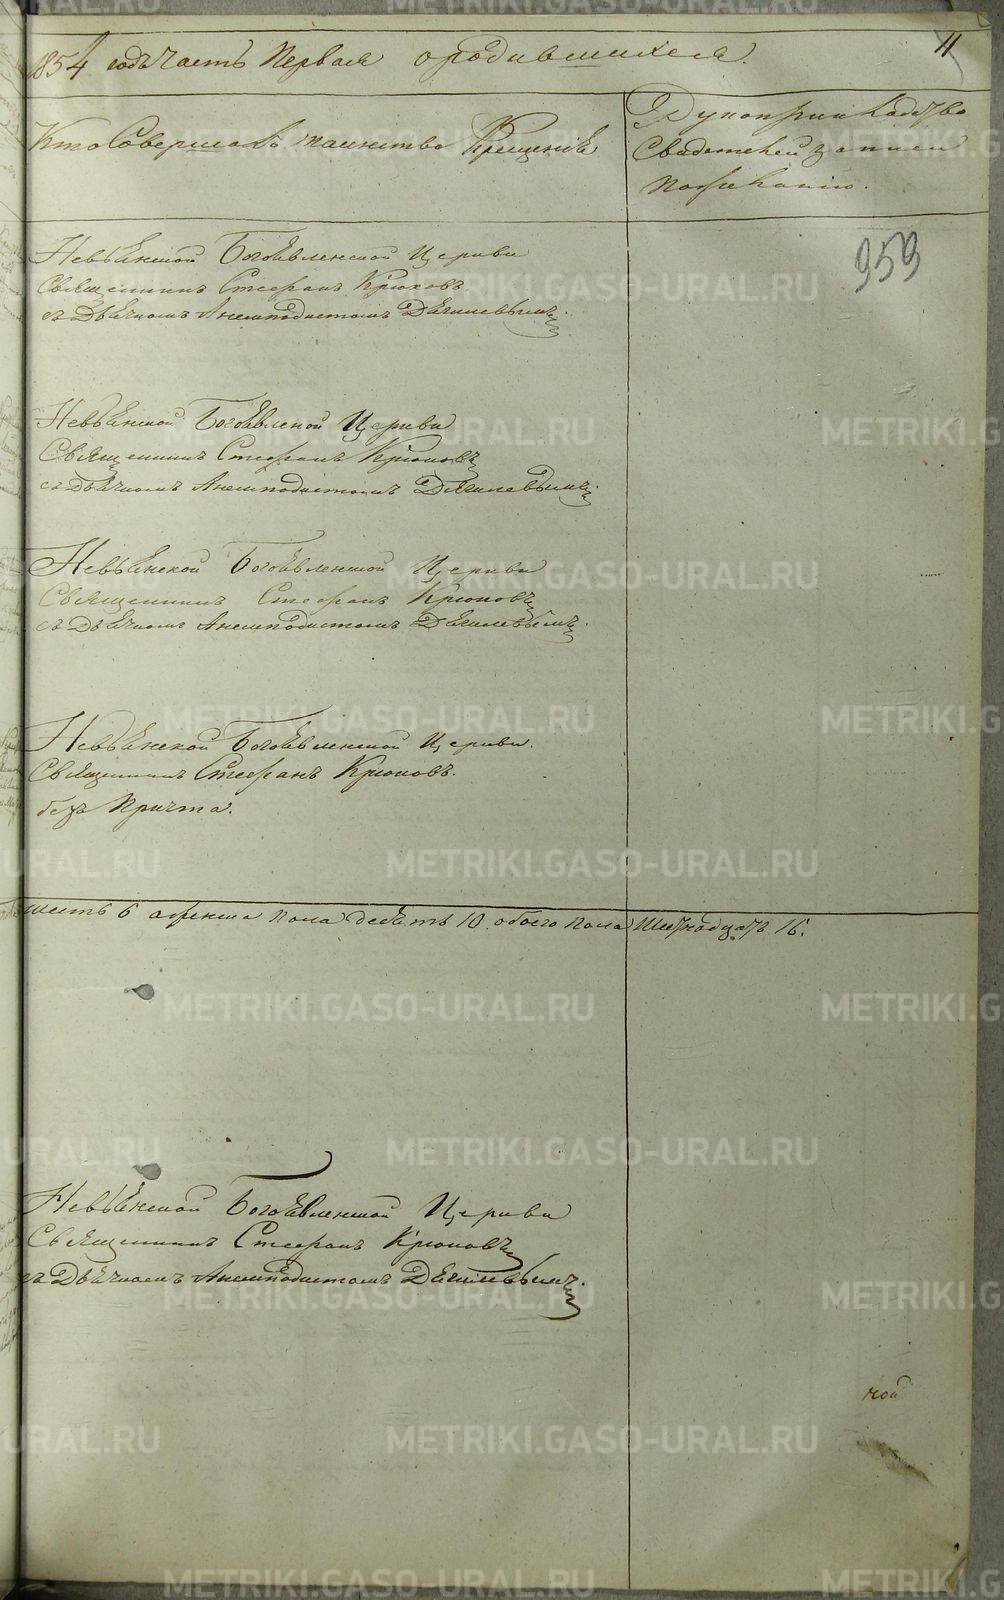 1854 годъ часть Первая о родившихся.
11
Кто Совершалъ таинство Крещенія
Рукоприкладство
Свидетелей записи
по желанію.
959
Невьянской Богоявленской Церкви
Священникъ Стефанъ Крюковъ
съ Дьячкомъ Анемподистомъ Дягилевымъ.
Невьянской Богоявленой Церкви
Священникъ Стефанъ Крюковъ
съ Дьячкомъ Анемподистомъ Дягилевымъ.
Невьянской Богоявленской Церкви
Священникъ Стефанъ Крюковъ
съ Дьячкомъ Анемподистомъ Дягилевымъ.
Невьянской Богоявленской Церкви.
Священникъ Стефанъ Крюковъ.
безъ Причта.
шесть 6 а женска пола десеть 10 обоего пола Шестнадцать 16.
Невьянской Богоявленской Церкви
Священникъ Стефанъ Крюковъ
съ Дьячкомъ Анемподистомъ Дягилевымъ.
кой
METRIKI.GASO-URAL.RU